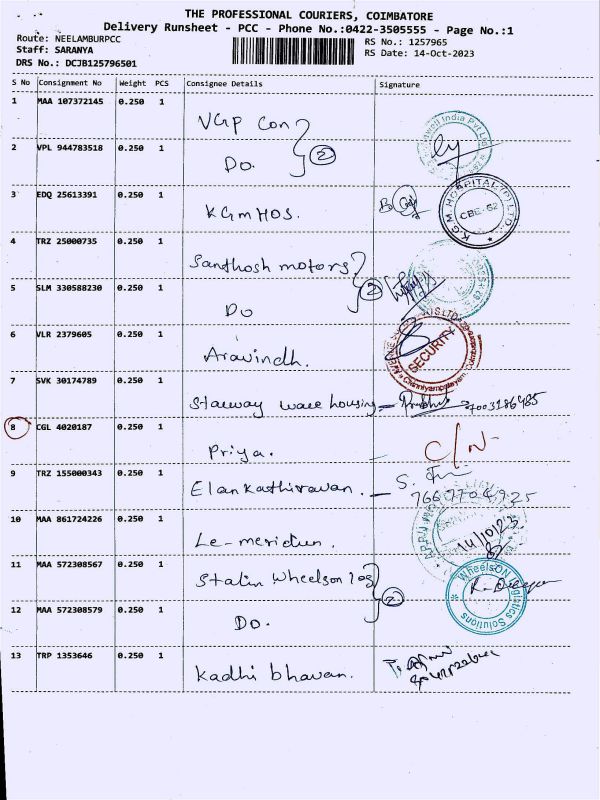 THE PROFESSIONAL COURIERS, COIMBATORE
Delivery Runsheet - PCC - Phone No.:0422-3505555 - Page No.:1
Route: NEELAMBURPCC
RS No.: 1257965
Staff: SARANYA
RS Date: 14-Oct-2023
DRS No.: DCJB125796501
S No Consignment No Weight PCS Consignee Details Signature
1 MAA 107372145 0.250 1
VGP Con
2 VPL 944783518 0.250 1
Do. 2
3 EDQ 25613391 0.250 1
KGM HOS.
K.G.M. HOSPITAL (P) LTD.
CBE-62
4 TRZ 25000735 0.250 1
Santhosh motors
5 SLM 330588230 0.250 1
Do 2
6 VLR 2379605 0.250 1
Aravindh.
SECURITY
7 SVK 30174789 0.250 1
Starway ware housing - 7003186985
8 CGL 4020187 0.250 1
Priya. - C/N-
9 TRZ 155000343 0.250 1
Elankathiravan. - S.
7667704925
10 MAA 861724226 0.250 1
Le-meridien.
14/10/23
11 MAA 572308567 0.250 1
Stalin Wheelson log
WheelsON Logistics Solutions
12 MAA 572308579 0.250 1
Do. 2
13 TRP 1353646 0.250 1
Kadhi bhavan.